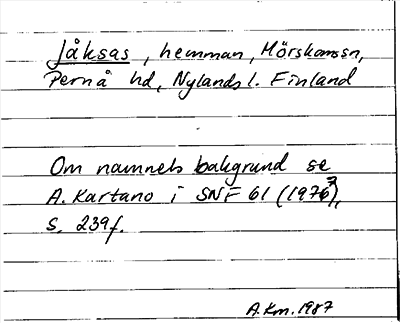 Jåksas, hemman, Mörskomssn,
Pernå hd, Nylands l. Finland
Om namnets bakgrund se
A. Kartano i SNF 61 (1976?),
s. 239f.
A.Km. 1987